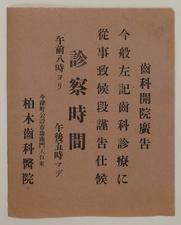 齒科開院廣告
今般左記齒科診療に
從事致候段謹告仕候
診察時間
午前八時ヨリ
午後五時マデ
柏木齒科醫院